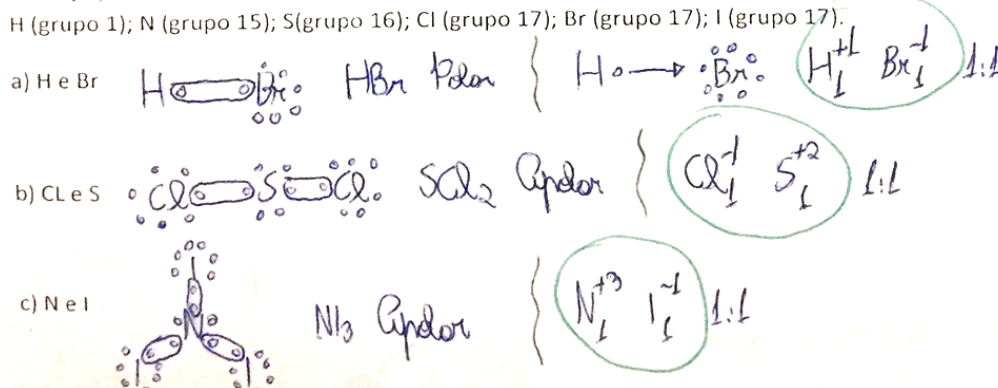 H (grupo 1); N (grupo 15); S(grupo 16); Cl (grupo 17); Br (grupo 17); I (grupo 17).
a) H e Br H Br HBr Polar H → Br H₁⁺¹ Br₁⁻¹ 1:1
b) CL e S Cl S Cl SCl₂ Apolar Cl₁⁻¹ S₁⁺² 1:1
I
c) N e I N NI₃ Apolar N₁⁺³ I₁⁻¹ 1:1
I I